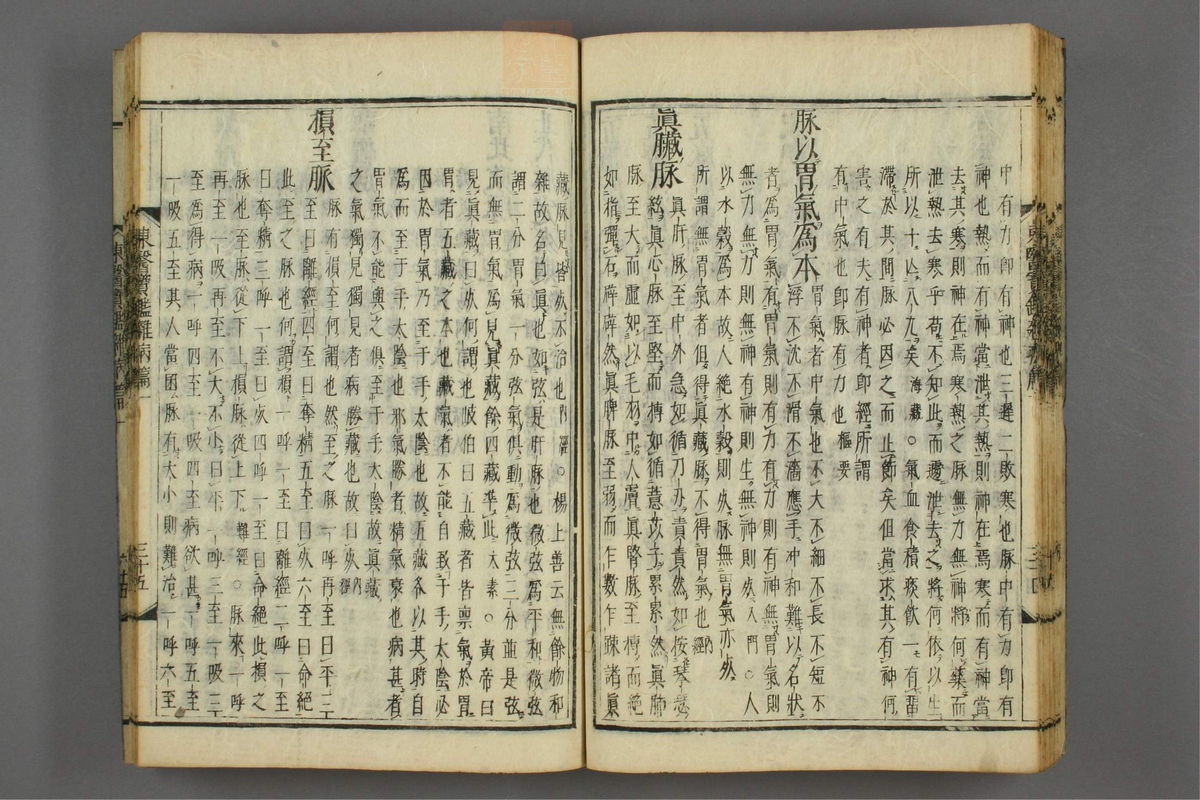 中有力卽有神也三遲二敗寒也脉中有力卽有
神也熱而有神當泄其熱則神在焉寒而有神當
去其寒則神在焉寒熱之脉無力無神將何藥而
泄熱去寒乎苟不知此而遽泄去之將何依以生
所以十亡八九矣海藏○氣血食積痰飮一有留
滯於其間脉必因之而止節矣但當求其有神何
害之有夫有神者卽經所謂
有中氣也卽有力也樞要
脉以胃氣爲本
胃氣者中氣也不大不細不長不短不
浮不沈不滑不濇應手冲和難以名狀
者爲胃氣有胃氣則有力有力則有神無胃氣則
無力無力則無神有神則生無神則死入門○人
以水穀爲本故人絶水穀則死脉無胃氣亦死
所謂無胃氣者但得眞藏脉不得胃氣也內經
眞臟脉
眞肝脉至中外急如循刀刃責責然如按琴瑟
絃眞心脉至堅而搏如循薏苡子累累然眞肺
脉至大而虛如以毛羽中人膚眞腎脉至搏而絶
如指彈石辟辟然眞脾脉至弱而乍數乍疎諸眞
藏脉見皆死不治也內經○楊上善云無餘物和
雜故名曰眞也如弦是肝脉也微弦爲平和微弦
謂二分胃氣一分弦氣俱動爲微弦三分並是弦
而無胃氣爲見眞藏餘四藏準此太素○黃帝曰
見眞藏曰死何謂也岐伯曰五藏者皆禀氣於胃
胃者五藏之本也藏氣者不能自致于手太陰必
因於胃氣乃至于手太陰也故五藏各以其時自
爲而至于手太陰也邪氣勝者精氣衰也病甚者
胃氣不能與之俱至于手太陰故眞藏
之氣獨見獨見者病勝藏也故曰死內經
損至脉
脉有損至何謂也然至之脉一呼再至曰平三
至曰離經四至曰奪精五至曰死六至曰命絶
此至之脉也何謂損一呼一至曰離經二呼一至
曰奪精三呼一至曰死四呼一至曰命絶此損之
脉也至脉從下上損脉從上下難經○脉來一呼
再至一吸再至不大不小曰平一呼三至一吸三
至爲得病一呼四至一吸四至病欲甚一呼五至
一吸五至其人當困脉有大小則難治一呼六至
東醫寶鑑雜病篇一
三十五